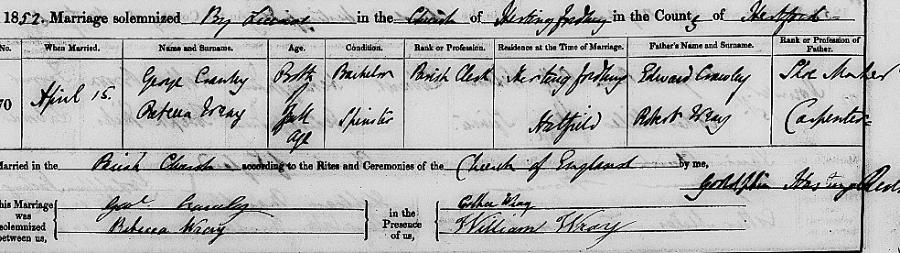 1852. Marriage solemnized By License in the Church of Hertingfordbury in the County of Hertford
No. When Married. Name and Surname. Age. Condition. Rank or Profession. Residence at the Time of Marriage. Father's Name and Surname. Rank or Profession of Father.
70 April 15. George Crawley Both Bachelor Parish Clerk Hertingfordbury Edward Crawley Shoe Maker
Rebecca Wray of full age Spinster Hatfield Robert Wray Carpenter
Married in the Parish Church according to the Rites and Ceremonies of the Church of England by me,
Godolphin Hastings
This Marriage was solemnized between us, Geo Crawley Rebecca Wray in the Presence of us, Esther Wray William Wray